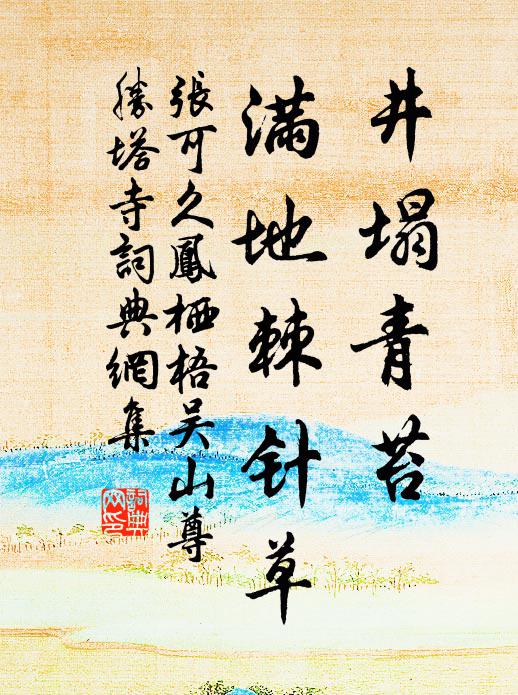 井塌青苔
满地棘针草
張可久鳳栖梧吴山尊
勝塔寺詞典網集
詞典網印